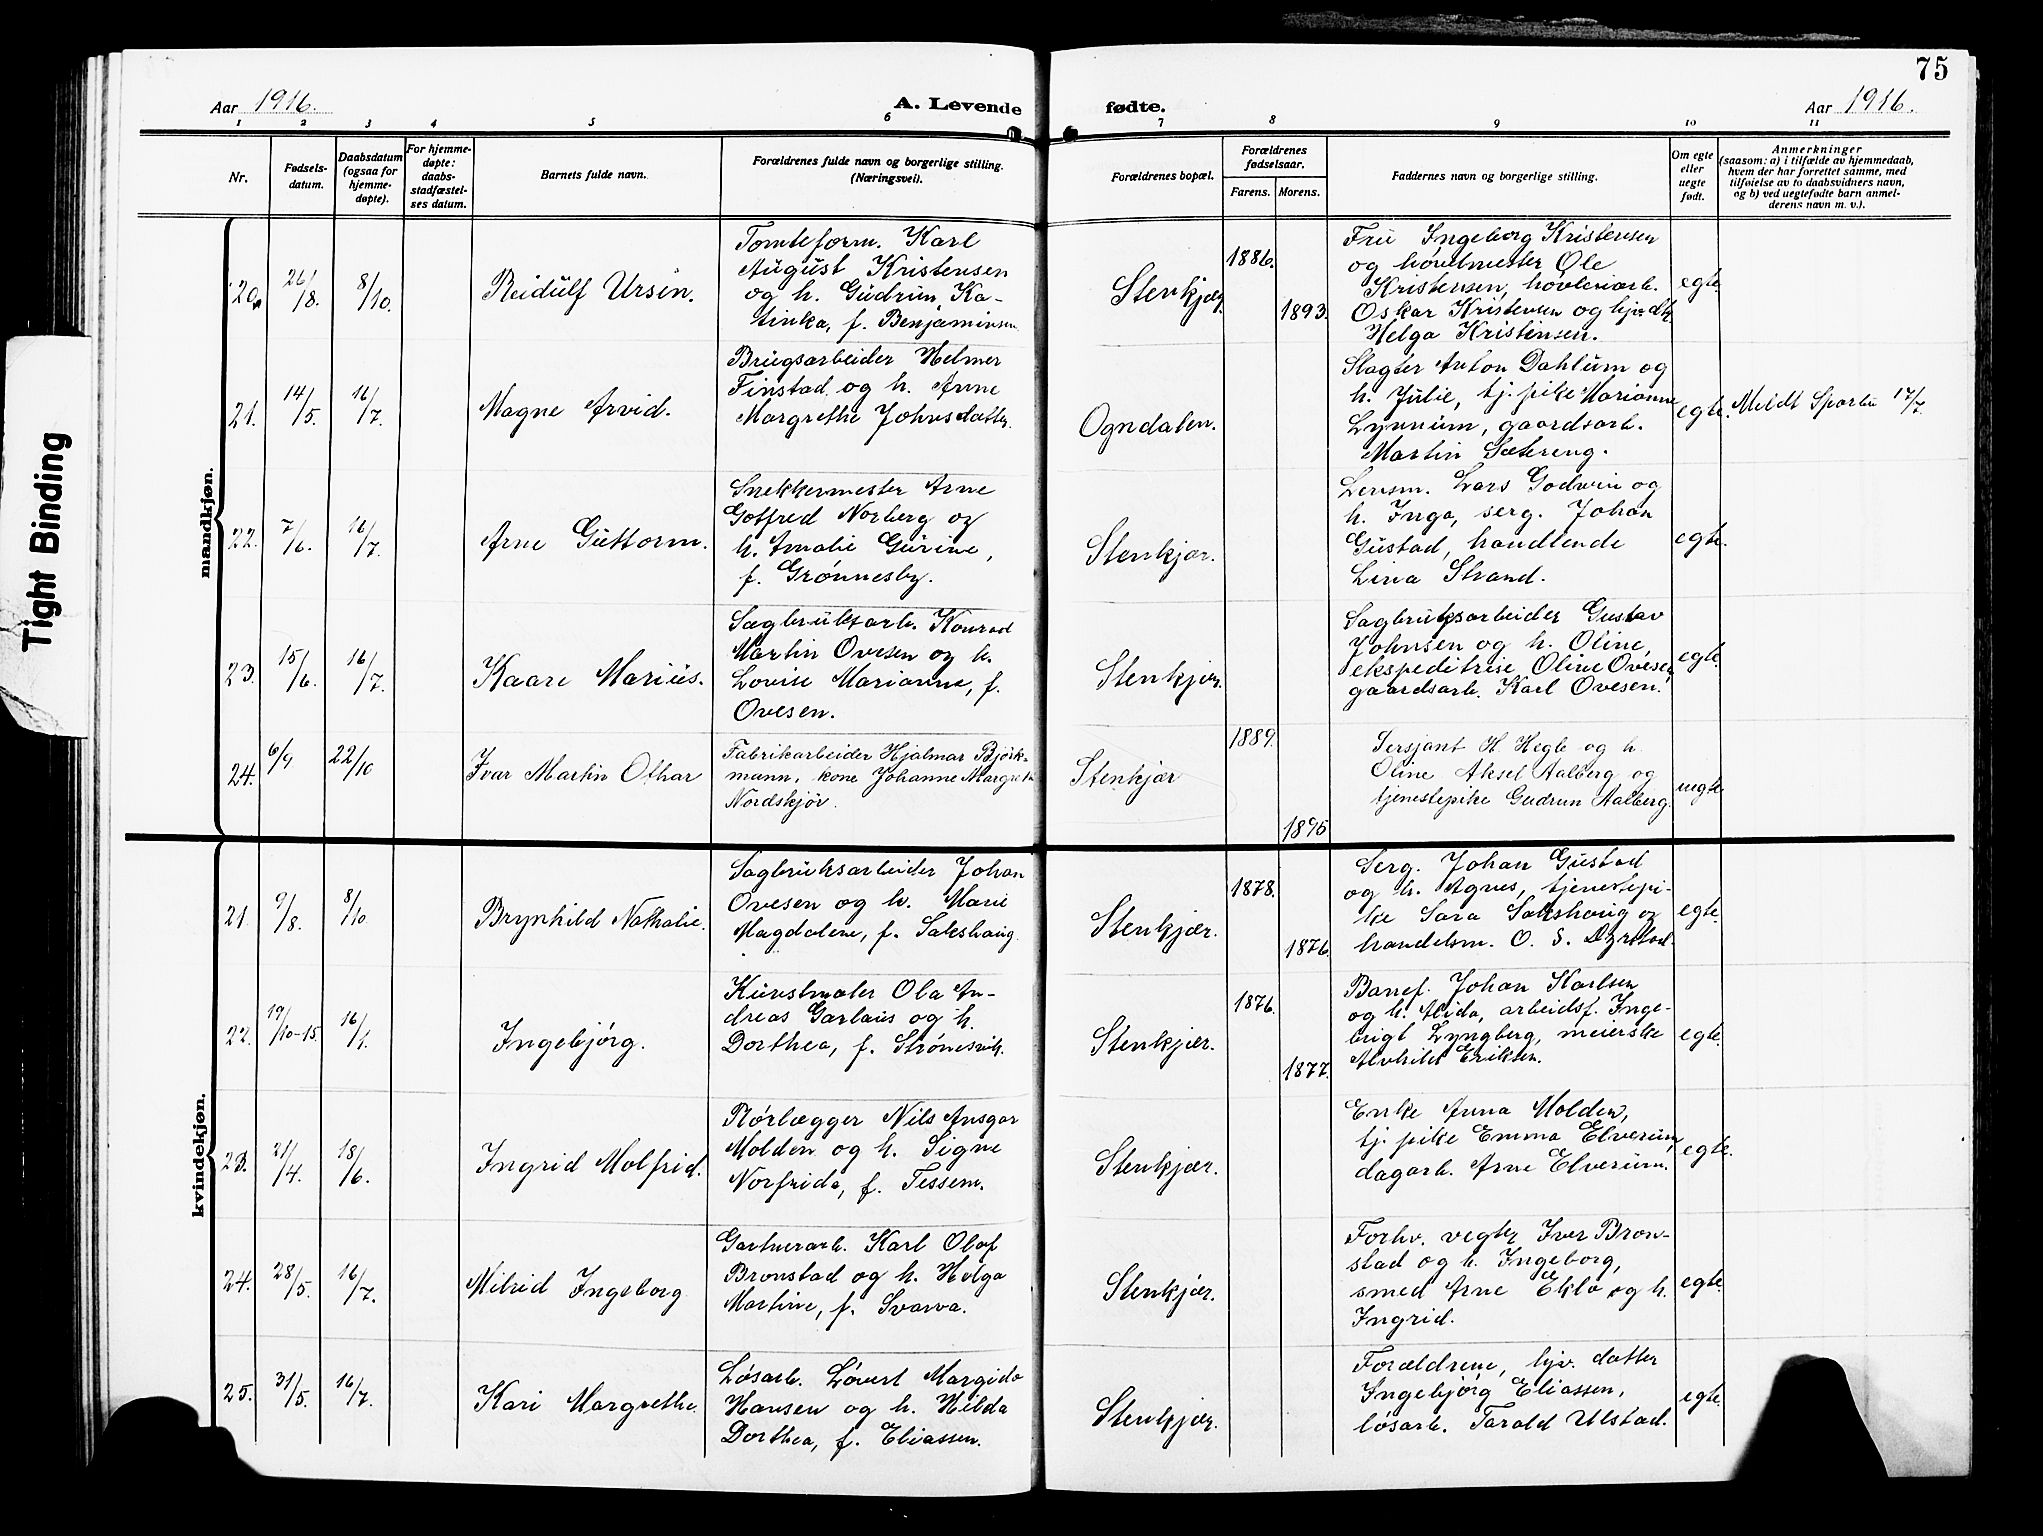 Tight Binding
75
Aar 1916.
A. Levende
fødte.
Aar 1916.
1 2 3 4 5 6
7 8 9 10 11
Nr.
Fødsels-
datum.
Daabsdatum
(ogsaa for
hjemme-
døpte).
For hjemme-
døpte:
daabs-
stadfæstel-
ses datum.
Barnets fulde navn.
Forældrenes fulde navn og borgerlige stilling.
(Næringsvei).
Forældrenes bopæl.
Forældrenes
fødselsaar.
Farens. Morens.
Faddernes navn og borgerlige stilling.
Om egte
eller
uegte
født.
Anmerkninger
(saasom: a) i tilfælde av hjemmedaab,
hvem der har forrettet samme, med
tilføielse av to daabsvidners navn,
og b) ved uegtefødte barn anmel-
derens navn m. v.).
mandkjøn.
20.
26/8.
8/10.
Reidulf Ursin.
Tomteform. Karl
August Kristensen
og h. Gudrun Ka-
tinka, f. Benjaminsen
Stenkjær.
1886.
1893.
Fru Ingeborg Kristensen
og høvelmester Ole
Kristensen, høvleriarb.
Oskar Kristensen og hjv. dt.
Helga Kristensen.
egte.
21.
14/5.
16/7.
Magne Arvid.
Brugsarbeider Helmer
Finstad og h. Anne
Margrethe Johnsdatter.
Ogndalen.
Slagter Anton Dahlum og
h. Julie, tj. pike Marianne
Lynnum, gaardsarb.
Martin Sætereng.
egte.
Meldt Sparbu 17/7.
22.
7/6.
16/7.
Arne Guttorm.
Snekkermester Arne
Gotfred Norberg og
h. Amalie Gurine,
f. Grønnesby.
Stenkjær.
Lensm. Lars Godwin og
h. Inga, serg. Johan
Gustad, handlende
Lina Strand.
egte.
23.
15/6.
16/7.
Kaare Marius.
Sagbruksarb. Konrad
Martin Ovesen og h.
Lovise Marianne, f.
Ovesen.
Stenkjær.
Sagbruksarbeider Gustav
Johnsen og h. Oline,
ekspeditrise Oline Ovesen,
gaardsarb. Karl Ovesen.
egte.
24.
6/9
22/10
Ivar Martin Othar
Fabrikarbeider Hjalmar Björk-
mann, kone Johanne Margrete
Nordskjör.
Stenkjær
1889.
1895
Sersjant H. Hegle og h.
Oline, Aksel Aalberg og
tjenestepike Gudrun Aalberg.
uegte
kvindekjøn.
21.
9/8.
8/10.
Brynhild Nathalie.
Sagbruksarbeider Johan
Ovesen og h. Marie
Magdalene, f. Sakshaug.
Stenkjær.
1878.
1876.
Serg. Johan Gustad
og h. Agnes, tjenestepi-
ke Sara Sakshaug og
handelsm. O. S. Dyrstad.
egte.
22.
19/10-15.
16/1.
Ingebjørg.
Kunstmaler Ola An-
dreas Garlaus og h.
Dorthea, f. Strønesvik.
Stenkjær.
1876.
1877.
Banef. Johan Karlsen
og h. Alida, arbeidsf. Inge-
brigt Lyngberg, meierske
Alvhild Eriksen.
egte.
23.
21/4.
18/6.
Ingrid Molfrid.
Rørlægger Nils Ansgar
Molden og h. Signe
Norfrida, f. Tessem.
Stenkjær.
Enke Anna Molden,
tj. pike Emma Elverum,
dagarb. Arne Elverum.
egte.
24.
28/5.
16/7.
Milrid Ingeborg
Gartnerarb. Karl Olaf
Bronstad og h. Helga
Martine, f. Svarva.
Stenkjær.
Forhv. vegter Iver Bron-
stad og h. Ingeborg,
smed Arne Eklo og h.
Ingrid.
egte.
25.
31/5.
16/7.
Kari Margrethe.
Løsarb. Løvert Margido
Hansen og h. Hilda
Dorthea, f. Eliassen.
Stenkjær.
Forældrene, hjv. datter
Ingebjørg Eliassen,
løsarb. Tarald Ulstad.
egte.